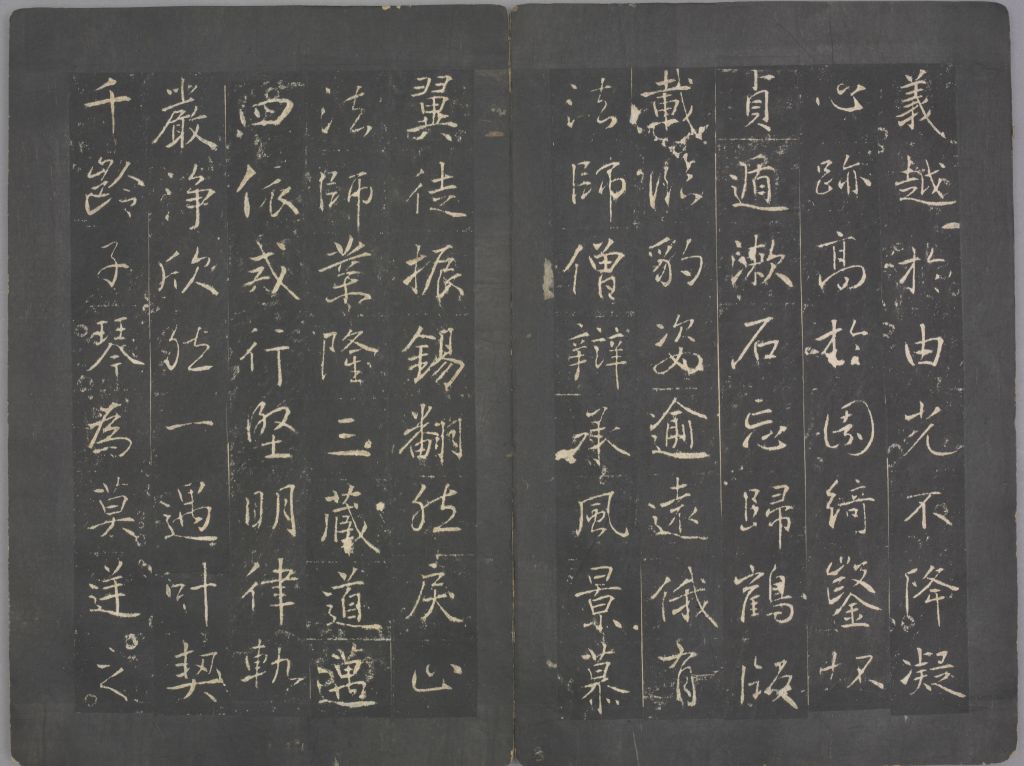 義越於由光不降凝
心跡高於園綺鑿坏
貞遁漱石忘歸鶴版
載臨豹姿逾遠俄有
法師僧辯承風景慕
翼徒振錫翻然戾止
法師業隆三藏道邁
四依戒行堅明律軌
嚴淨欣然一遇叶契
千齡子琴為莫逆之